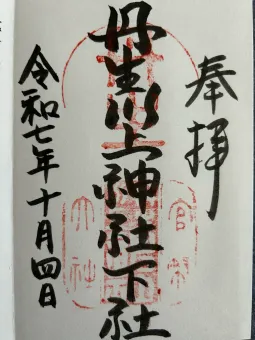 奉拝
丹生川上神社下社
令和七年十月四日
官幣
大社